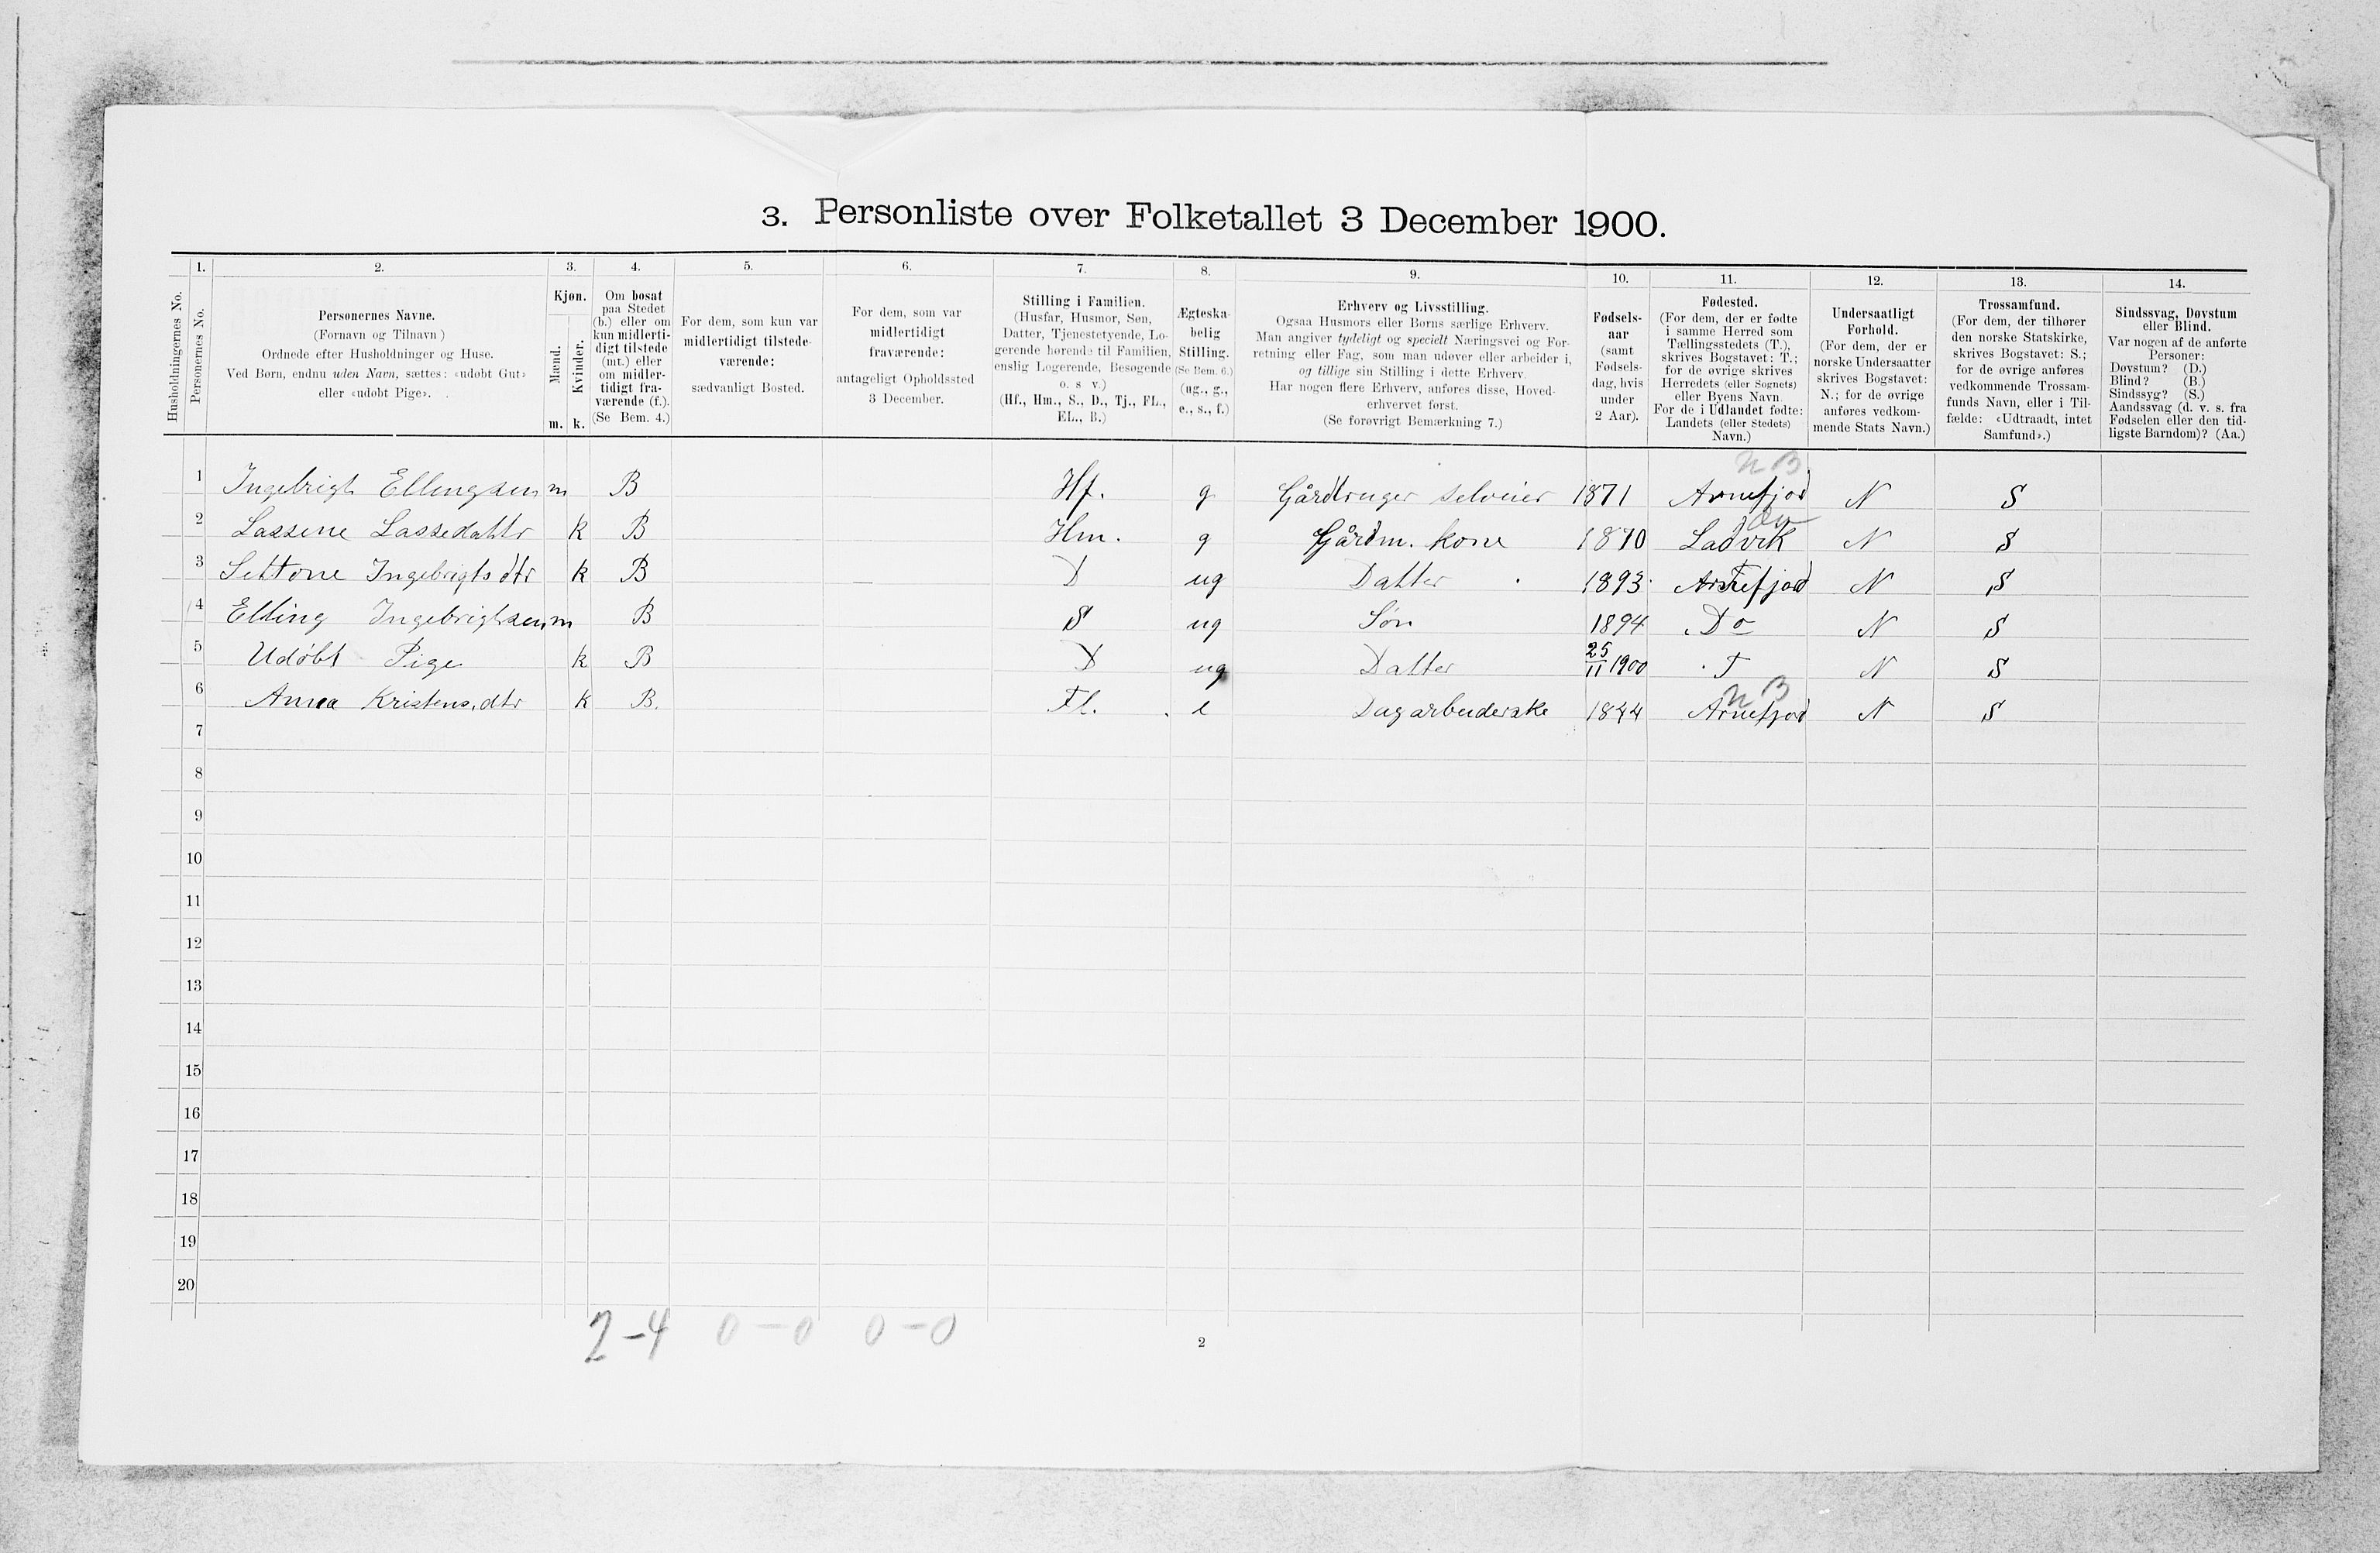 3. Personliste over Folketallet 3 December 1900.
1. 2. 3. 4. 5. 6. 7. 8. 9. 10. 11. 12. 13. 14.
Husholdningernes No.
Personernes No.
Personernes Navne.
(Fornavn og Tilnavn)
Ordnede efter Husholdninger og Huse.
Ved Børn, endnu uden Navn, sættes: «udøbt Gut»
eller «udøbt Pige».
Kjøn.
Mænd.
Kvinder.
m. k.
Om bosat
paa Stedet
(b.) eller om
kun midlerti-
digt tilstede
(mt.) eller
om midler-
tidigt fra-
værende (f.).
(Se Bem. 4.)
For dem, som kun var
midlertidigt tilstede-
værende:
sædvanligt Bosted.
For dem, som var
midlertidigt
fraværende:
antageligt Opholdssted
3 December.
Stilling i Familien.
(Husfar, Husmor, Søn,
Datter, Tjenestetyende, Lo-
gerende hørende til Familien,
enslig Logerende, Besøgende
o. s v.)
(Hf., Hm., S., D., Tj., FL.,
EL., B.)
Ægteska-
belig
Stilling.
(Se Bem. 6.)
(ug., g.,
e., s., f.)
Erhverv og Livsstilling.
Ogsaa Husmors eller Børns særlige Erhverv.
Man angiver tydeligt og specielt Næringsvei og For-
retning eller Fag, som man udøver eller arbeider i,
og tillige sin Stilling i dette Erhverv.
Har nogen flere Erhverv, anføres disse, Hoved-
erhvervet først.
(Se forøvrigt Bemærkning 7.)
Fødsels-
aar
(samt
Fødsels-
dag, hvis
under
2 Aar).
Fødested.
(For dem, der er fødte
i samme Herred som
Tællingsstedets (T.),
skrives Bogstavet: T.;
for de øvrige skrives
Herredets (eller Sognets)
eller Byens Navn.
For de i Udlandet fødte:
Landets (eller Stedets)
Navn.)
Undersaatligt
Forhold.
(For dem, der er
norske Undersaatter
skrives Bogstavet:
N.; for de øvrige
anføres vedkom-
mende Stats Navn.)
Trossamfund.
(For dem, der tilhører
den norske Statskirke,
skrives Bogstavet: S.;
for de øvrige anføres
vedkommende Trossam-
funds Navn, eller i Til-
fælde: «Udtraadt, intet
Samfund».)
Sindssvag, Døvstum
eller Blind.
Var nogen af de anførte
Personer:
Døvstum? (D.)
Blind? (B.)
Sindssyg? (S.)
Aandssvag (d. v. s. fra
Fødselen eller den tid-
ligste Barndom)? (Aa.)
1 Ingebrigt Ellingsen m B Hf. g Gårdbruger selveier 1871 Arnefjord N S
2 Lassine Lassedattr k B Hm. g Gårdm. kone 1870 Ladvik N S
3 Ingebrigts dtr k B D ug Datter 1893 Arnefjord N S
4 Elling Ingebrigtsen m B S ug Søn 1894 Do N S
5 Udøbt Pige k B D ug Datter 25/11 1900 T N S
6 Anna Kristens.dtr k B. Fl. e Dagarbeiderske 1844 Arnefjord N S
7
8
9
10
11
12
13
14
15
16
17
18
19
20
2-4 0-0 0-0
2